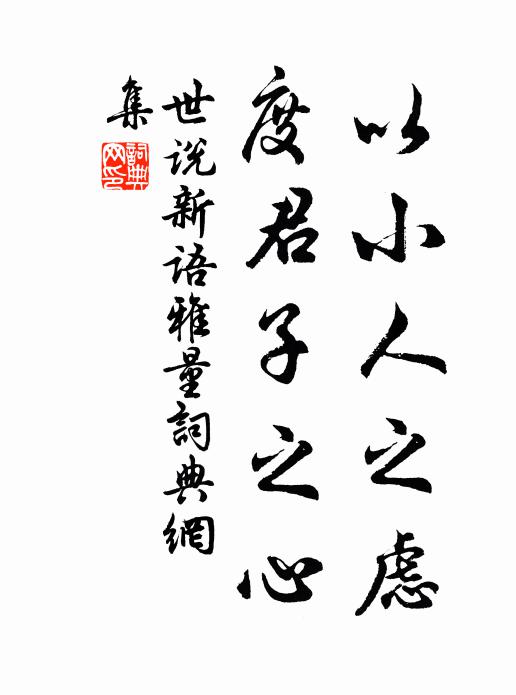 以小人之慮
度君子之心
世说新语雅量詞典網
集
詞典
网印